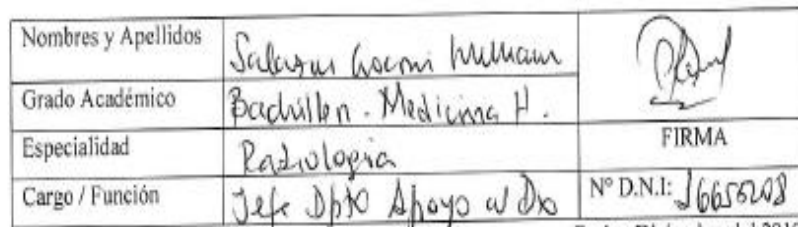 Nombres y Apellidos Salazar William
Grado Académico Bachiller - Medicina H.
Especialidad Radiología FIRMA
Cargo / Función Jefe Dpto Apoyo al Dx Nº D.N.I: